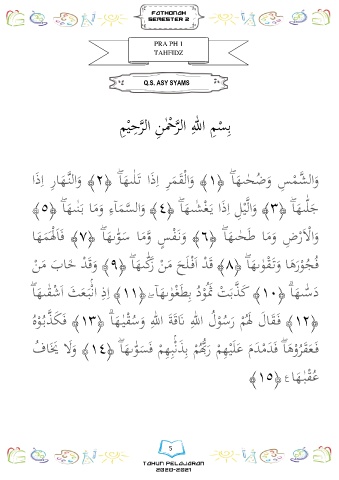 FATHONAH
SEMESTER 2
PRA PH 1
TAHFIDZ
Q.S. ASY SYAMS
بِسْمِ اللهِ الرَّحْمٰنِ الرَّحِيْمِ
وَالشَّمْسِ وَضُحٰىهَاۖ ﴿١﴾ وَالْقَمَرِ اِذَا تَلٰىهَاۖ ﴿٢﴾ وَالنَّهَارِ اِذَا
جَلّٰىهَاۖ ﴿٣﴾ وَالَّيْلِ اِذَا يَغْشٰىهَاۖ ﴿٤﴾ وَالسَّمَاۤءِ وَمَا بَنٰىهَاۖ ﴿٥﴾
وَالْاَرْضِ وَمَا طَحٰىهَاۖ ﴿٦﴾ وَنَفْسٍ وَّمَا سَوّٰىهَاۖ ﴿٧﴾ فَاَلْهَمَهَا
فُجُوْرَهَا وَتَقْوٰىهَاۖ ﴿٨﴾ قَدْ اَفْلَحَ مَنْ زَكّٰىهَاۖ ﴿٩﴾ وَقَدْ خَابَ مَنْ
دَسّٰىهَاۗ ﴿١٠﴾ كَذَّبَتْ ثَمُوْدُ بِطَغْوٰىهَآ ۖ ﴿١١﴾ اِذِ انْۢبَعَثَ اَشْقٰىهَاۖ
﴿١٢﴾ فَقَالَ لَهُمْ رَسُوْلُ اللهِ نَاقَةَ اللهِ وَسُقْيٰهَاۗ ﴿١٣﴾ فَكَذَّبُوْهُ
فَعَقَرُوْهَاۖ فَدَمْدَمَ عَلَيْهِمْ رَبُّهُمْ بِذَنْۢبِهِمْ فَسَوّٰىهَاۖ ﴿١٤﴾ وَلَا يَخَافُ
عُقْبٰهَا ࣖ ﴿١٥﴾
5
TAHUN PELAJARAN
2020-2021